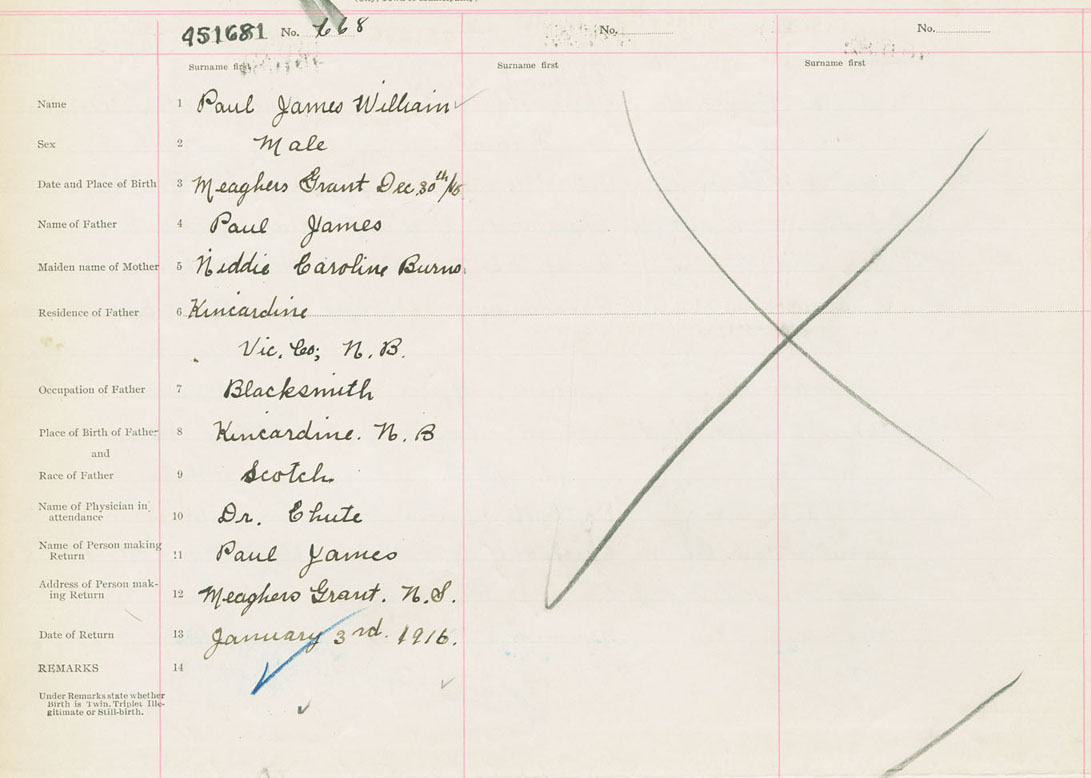 451681 No. 668 No. No.
Surname first Surname first Surname first
Name 1 Paul James William
Sex 2 Male
Date and Place of Birth 3 Meaghers Grant Dec. 30th/15
Name of Father 4 Paul James
Maiden name of Mother 5 Neddie Caroline Burns.
Residence of Father 6 Kincardine
Vic. Co; N. B.
Occupation of Father 7 Blacksmith
Place of Birth of Father 8 Kincardine. N. B
and
Race of Father 9 Scotch
Name of Physician in
attendance 10 Dr. Chute
Name of Person making
Return 11 Paul James
Address of Person mak-
ing Return 12 Meaghers Grant. N.S.
Date of Return 13 January 3rd. 1916.
REMARKS 14
Under Remarks state whether
Birth is Twin, Triplet, Ille-
gitimate or Still-birth.